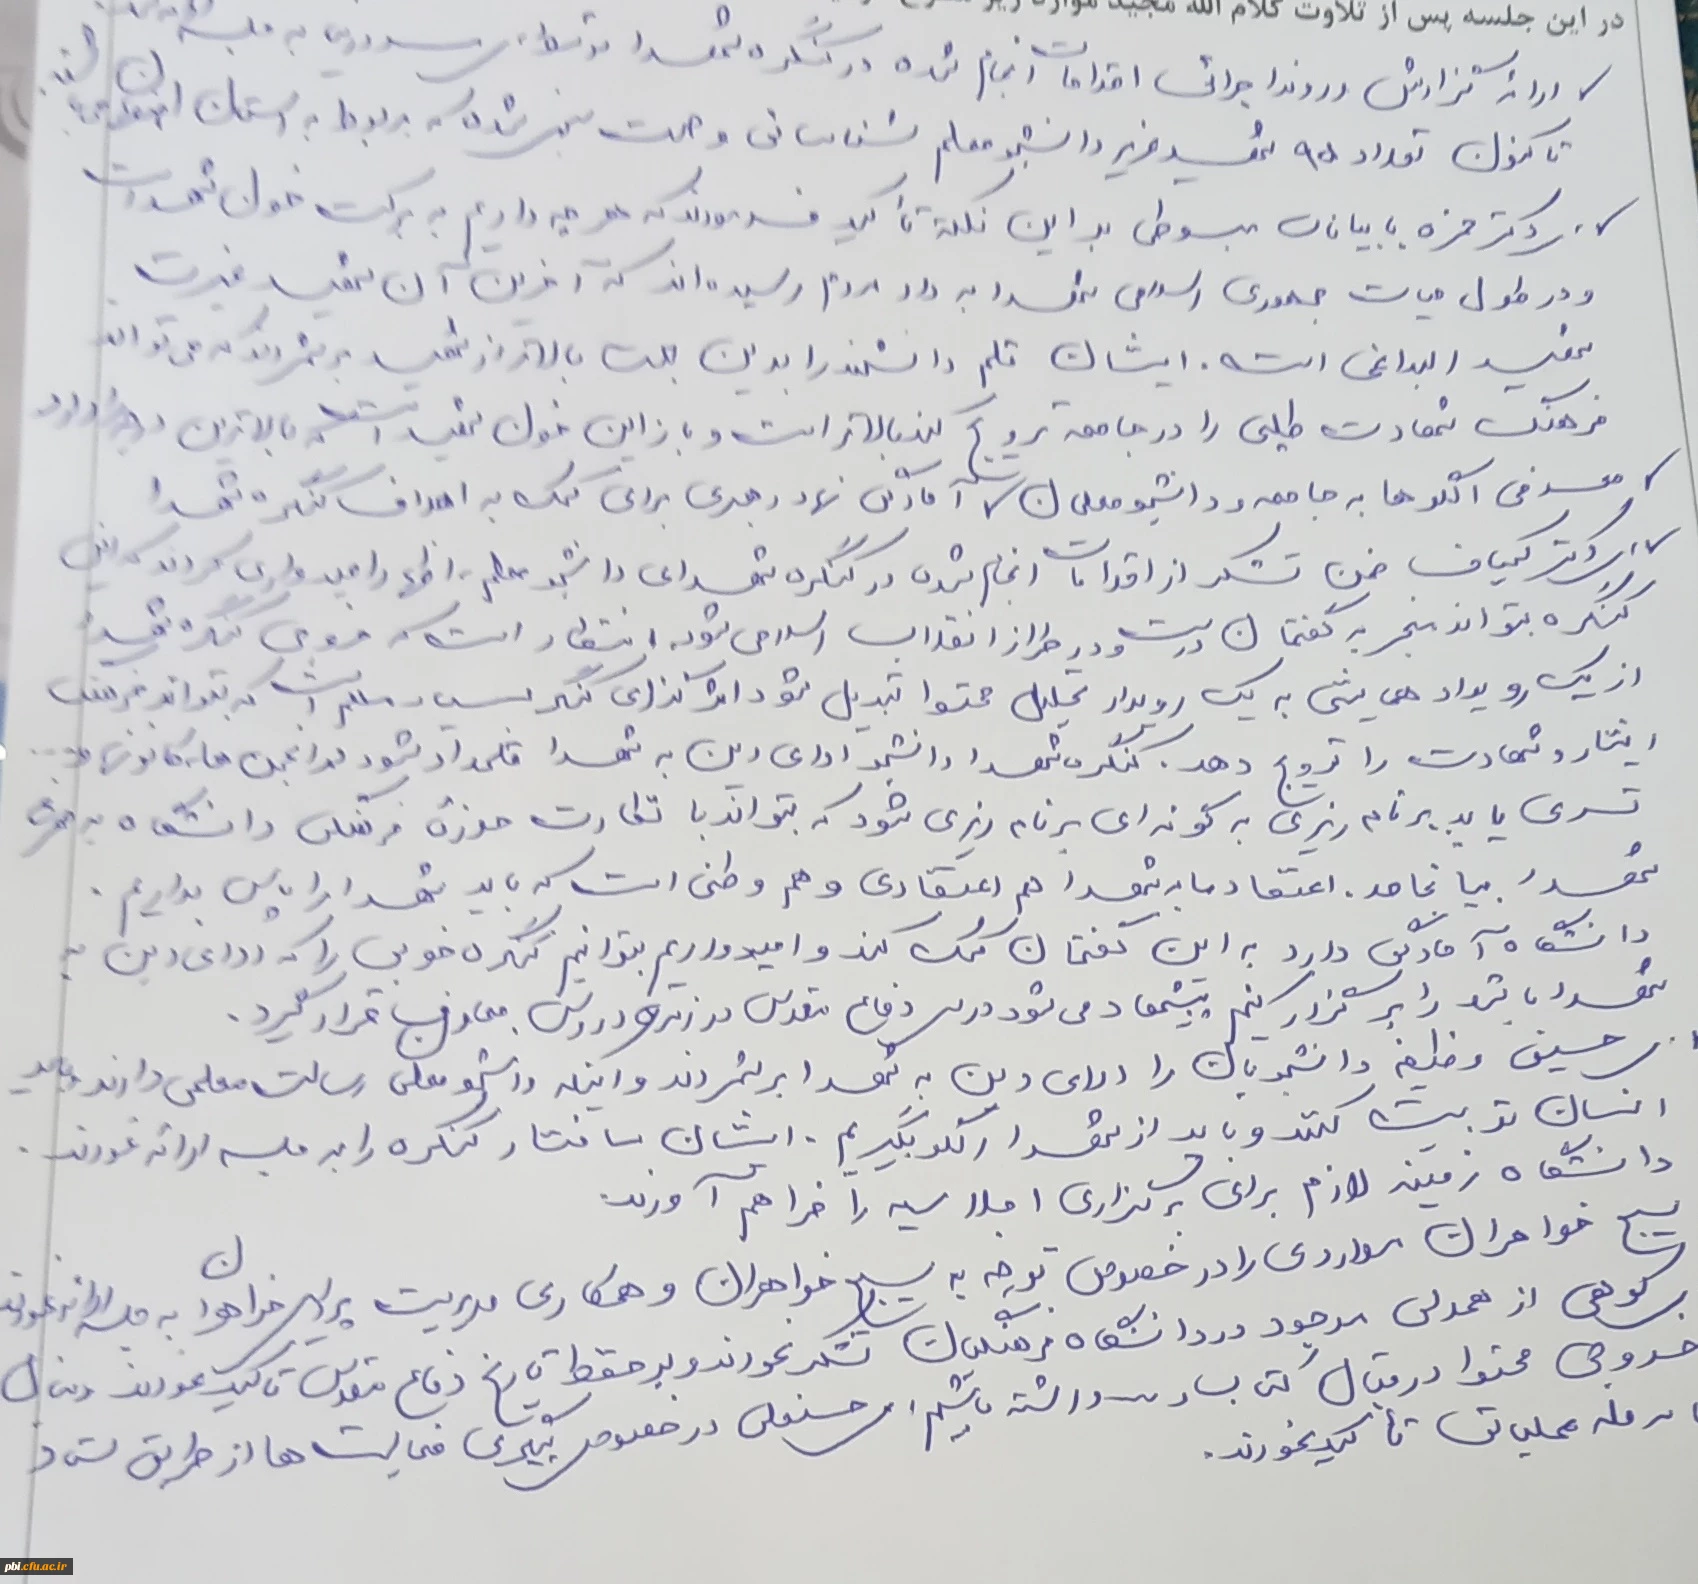 در این جلسه پس از تلاوت کلام الله مجید موارد زیر
ارائه گزارش روند اجرائی اقدامات انجام شده در کنگره شهدا توسط به جلسه
تاکنون تعداد ۹۵ شهید عزیز دانشجو معلم شناسائی و شده که مربوط به استان
دکتر حمزه با بیانات مبسوطی بر این نکته تأکید فرمودند که هر چه داریم به برکت خون شهداست
و در طول حیات جمهوری اسلامی شهدا به داد مردم رسیده اند که آخرین آن شهید
شهید است. ایشان قلم دانشمند را بدین جهت بالاتر از شهید برشمردند که می تواند
فرهنگ شهادت طلبی را در جامعه ترویج کند بالاتر است و باز این خون شهید است که بالاترین
معرفی الگوها به جامعه و دانشجو معلمان آمادگی نهاد رهبری برای کمک به اهداف کنگره شهدا
دکتر ضمن تشکر از اقدامات انجام شده در کنگره شهدای دانشجو معلم، اظهار امیدواری کردند که این
کنگره بتواند منجر به گفتمان درست و در طراز انقلاب اسلامی شود. انتظار است که خروجی کنگره شهدا
از یک رویداد همایشی به یک رویداد تحلیل محتوا تبدیل شود اثرگذاری کنگره بسیار مهم است که بتواند فرهنگ
ایثار و شهادت را ترویج دهد. کنگره شهدا دانشجو ادای دین به شهدا قلمداد شود در انجمن ها، کانونها و...
تسری یابد برنامه ریزی به گونه ای برنامه ریزی شود که بتواند با نظارت حوزه فرهنگی دانشگاه به
شهدا بیانجامد. اعتقاد ما به شهدا هم اعتقادی و هم وطنی است که باید شهدا را پاس بداریم.
دانشگاه آمادگی دارد به این گفتمان کمک کند و امیدواریم بتوانیم کنگره خوبی را که ادای دین به
شهدا باشد را برگزار کنیم پیشنهاد می شود درس دفاع مقدس در زمره دروس معارف قرار گیرد.
وظیفه دانشجویان را ادای دین به شهدا برشمردند و اینکه دانشجو معلمی رسالت معلمی دارند و باید
انسان تربیت کنند و باید از شهدا الگو بگیریم. ایشان ساختار کنگره را به جلسه ارائه نمودند.
دانشگاه زمینه لازم برای برگزاری اجلاسیه را فراهم آورند.
بسیج خواهران مواردی را در خصوص توجه به بسیج خواهران و همکاری مدیریت پردیس خواهران به جلسه ارائه نمودند
از همدلی موجود در دانشگاه فرهنگیان تشکر نمودند و بر حفظ تاریخ دفاع مقدس تأکید نمودند دنبال
خروجی محتوا در قبال کتاب داشته باشیم. در خصوص پیگیری فعالیت ها از طریق ستاد
مرحله عملیاتی تأکید نمودند.
pbi.cfu.ac.ir